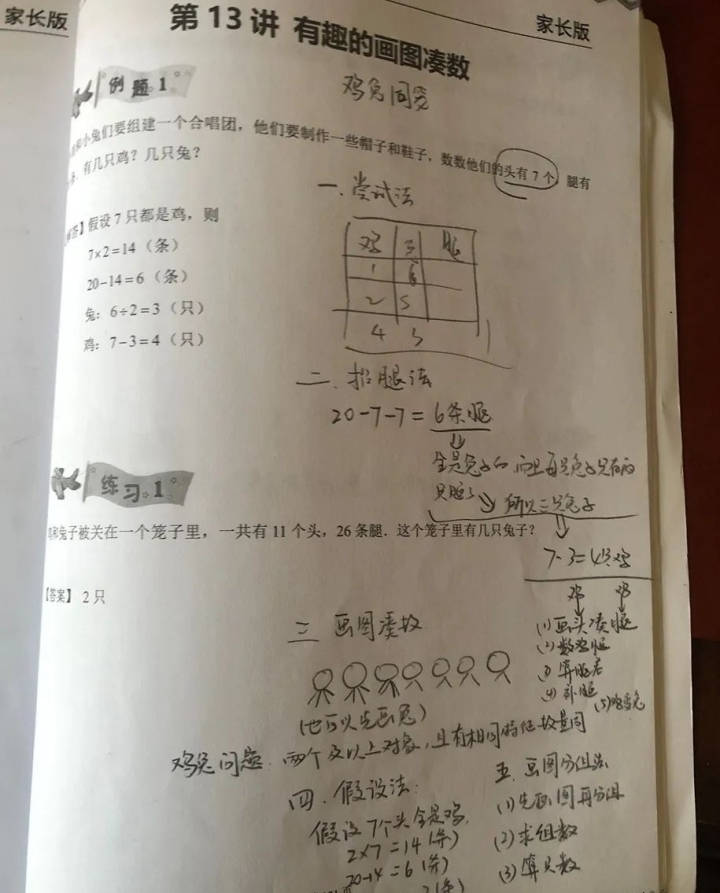 家长版
家长版
第 13 讲 有趣的画图凑数
例题 1
鸡兔同笼
和小兔们要组建一个合唱团，他们要制作一些帽子和鞋子，数数他们的头有 7 个，腿有
有几只鸡？几只兔？
一、尝试法
解答】假设 7 只都是鸡，则
7×2=14（条）
20−14=6（条）
兔：6÷2=3（只）
鸡：7−3=4（只）
鸡 兔 腿
1 6
2 5
4 3
二、抬腿法
20-7-7=6条腿
全是兔子的，而且每只兔子只有两
只腿了 所以三只兔子
7-3=4只鸡
练习 1
和兔子被关在一个笼子里，一共有 11 个头，26 条腿．这个笼子里有几只兔子？
【答案】 2 只
三 画图凑数
(1)画头凑腿
(2)数
(4)补腿
(也可以先画兔)
鸡兔问题：两个及以上对象，且有相同特征
四、假设法：
假设7个头全是鸡
2×7=14(条)
20-14=6(条)
五、画图分组法
(1)先画图再分组
(2)求组数
(3)算只数